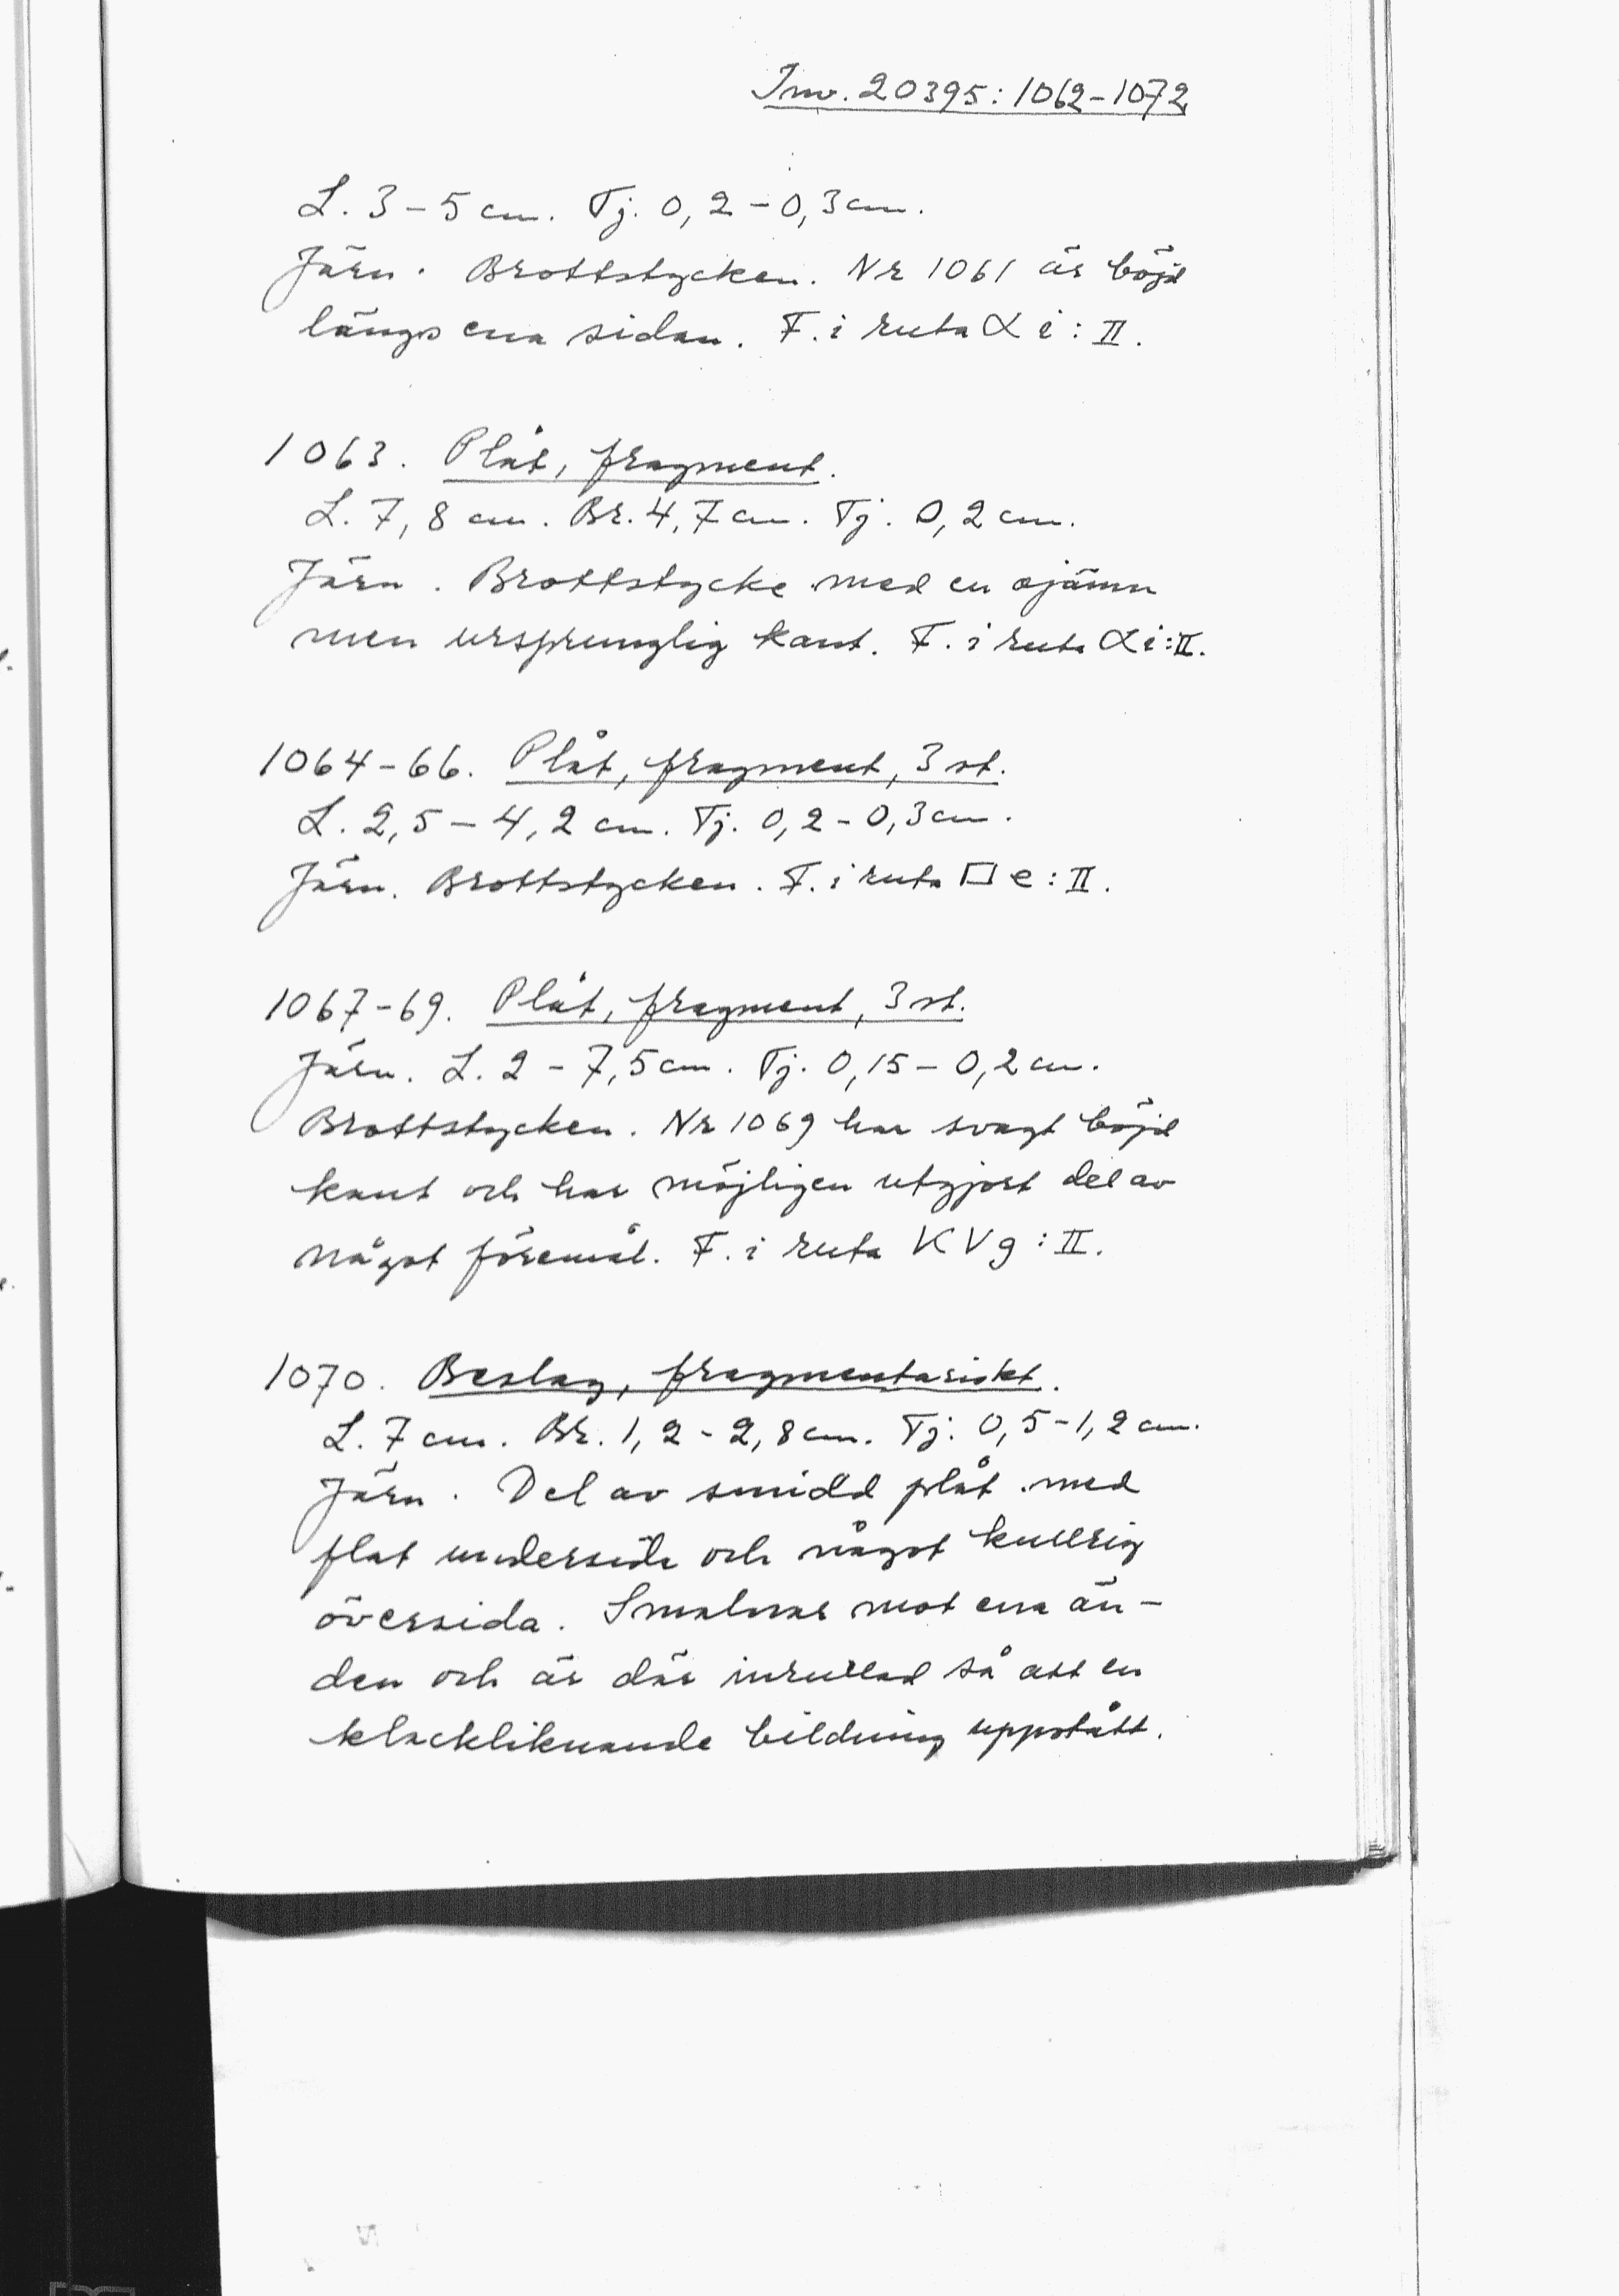 Inv. 20395:1062-1072
L. 3-5 cm. Tj. 0,2-0,3 cm.
Järn. Brottstycken. Nr 1061 är böjd
längs ena sidan. F. i ruta α i : II.
1063. Plåt, fragment.
L. 7,8 cm. Br. 4,7 cm. Tj. 0,2 cm.
Järn. Brottstycke med en ojämn
men ursprunglig kant. F. i ruta α i : II.
1064-66. Plåt, fragment, 3 st.
L. 2,5-4,2 cm. Tj. 0,2-0,3 cm.
Järn. Brottstycken. F. i ruta □ e : II.
1067-69. Plåt, fragment, 3 st.
Järn. L. 2-7,5 cm. Tj. 0,15-0,2 cm.
Brottstycken. Nr 1069 har svagt böjd
kant och har möjligen utgjort del av
något föremål. F. i ruta K V g : II.
1070. Beslag, fragmentariskt.
L. 7 cm. Br. 1,2-2,8 cm. Tj. 0,5-1,2 cm.
Järn. Del av smidd plåt med
flat undersida och något kullrig
översida. Smalnar mot ena än-
den och är där inrullad så att en
klackliknande bildning uppstått.